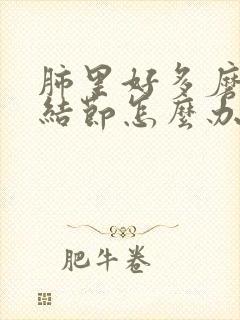 肺里好多磨
結節怎麼办
肥牛卷